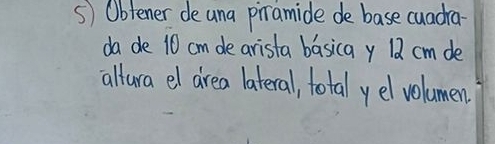 5) Obtener de una pirámide de base cuadra-
da de 10 cm de arista básica y 12 cm de
altura el área lateral, total y el volumen.